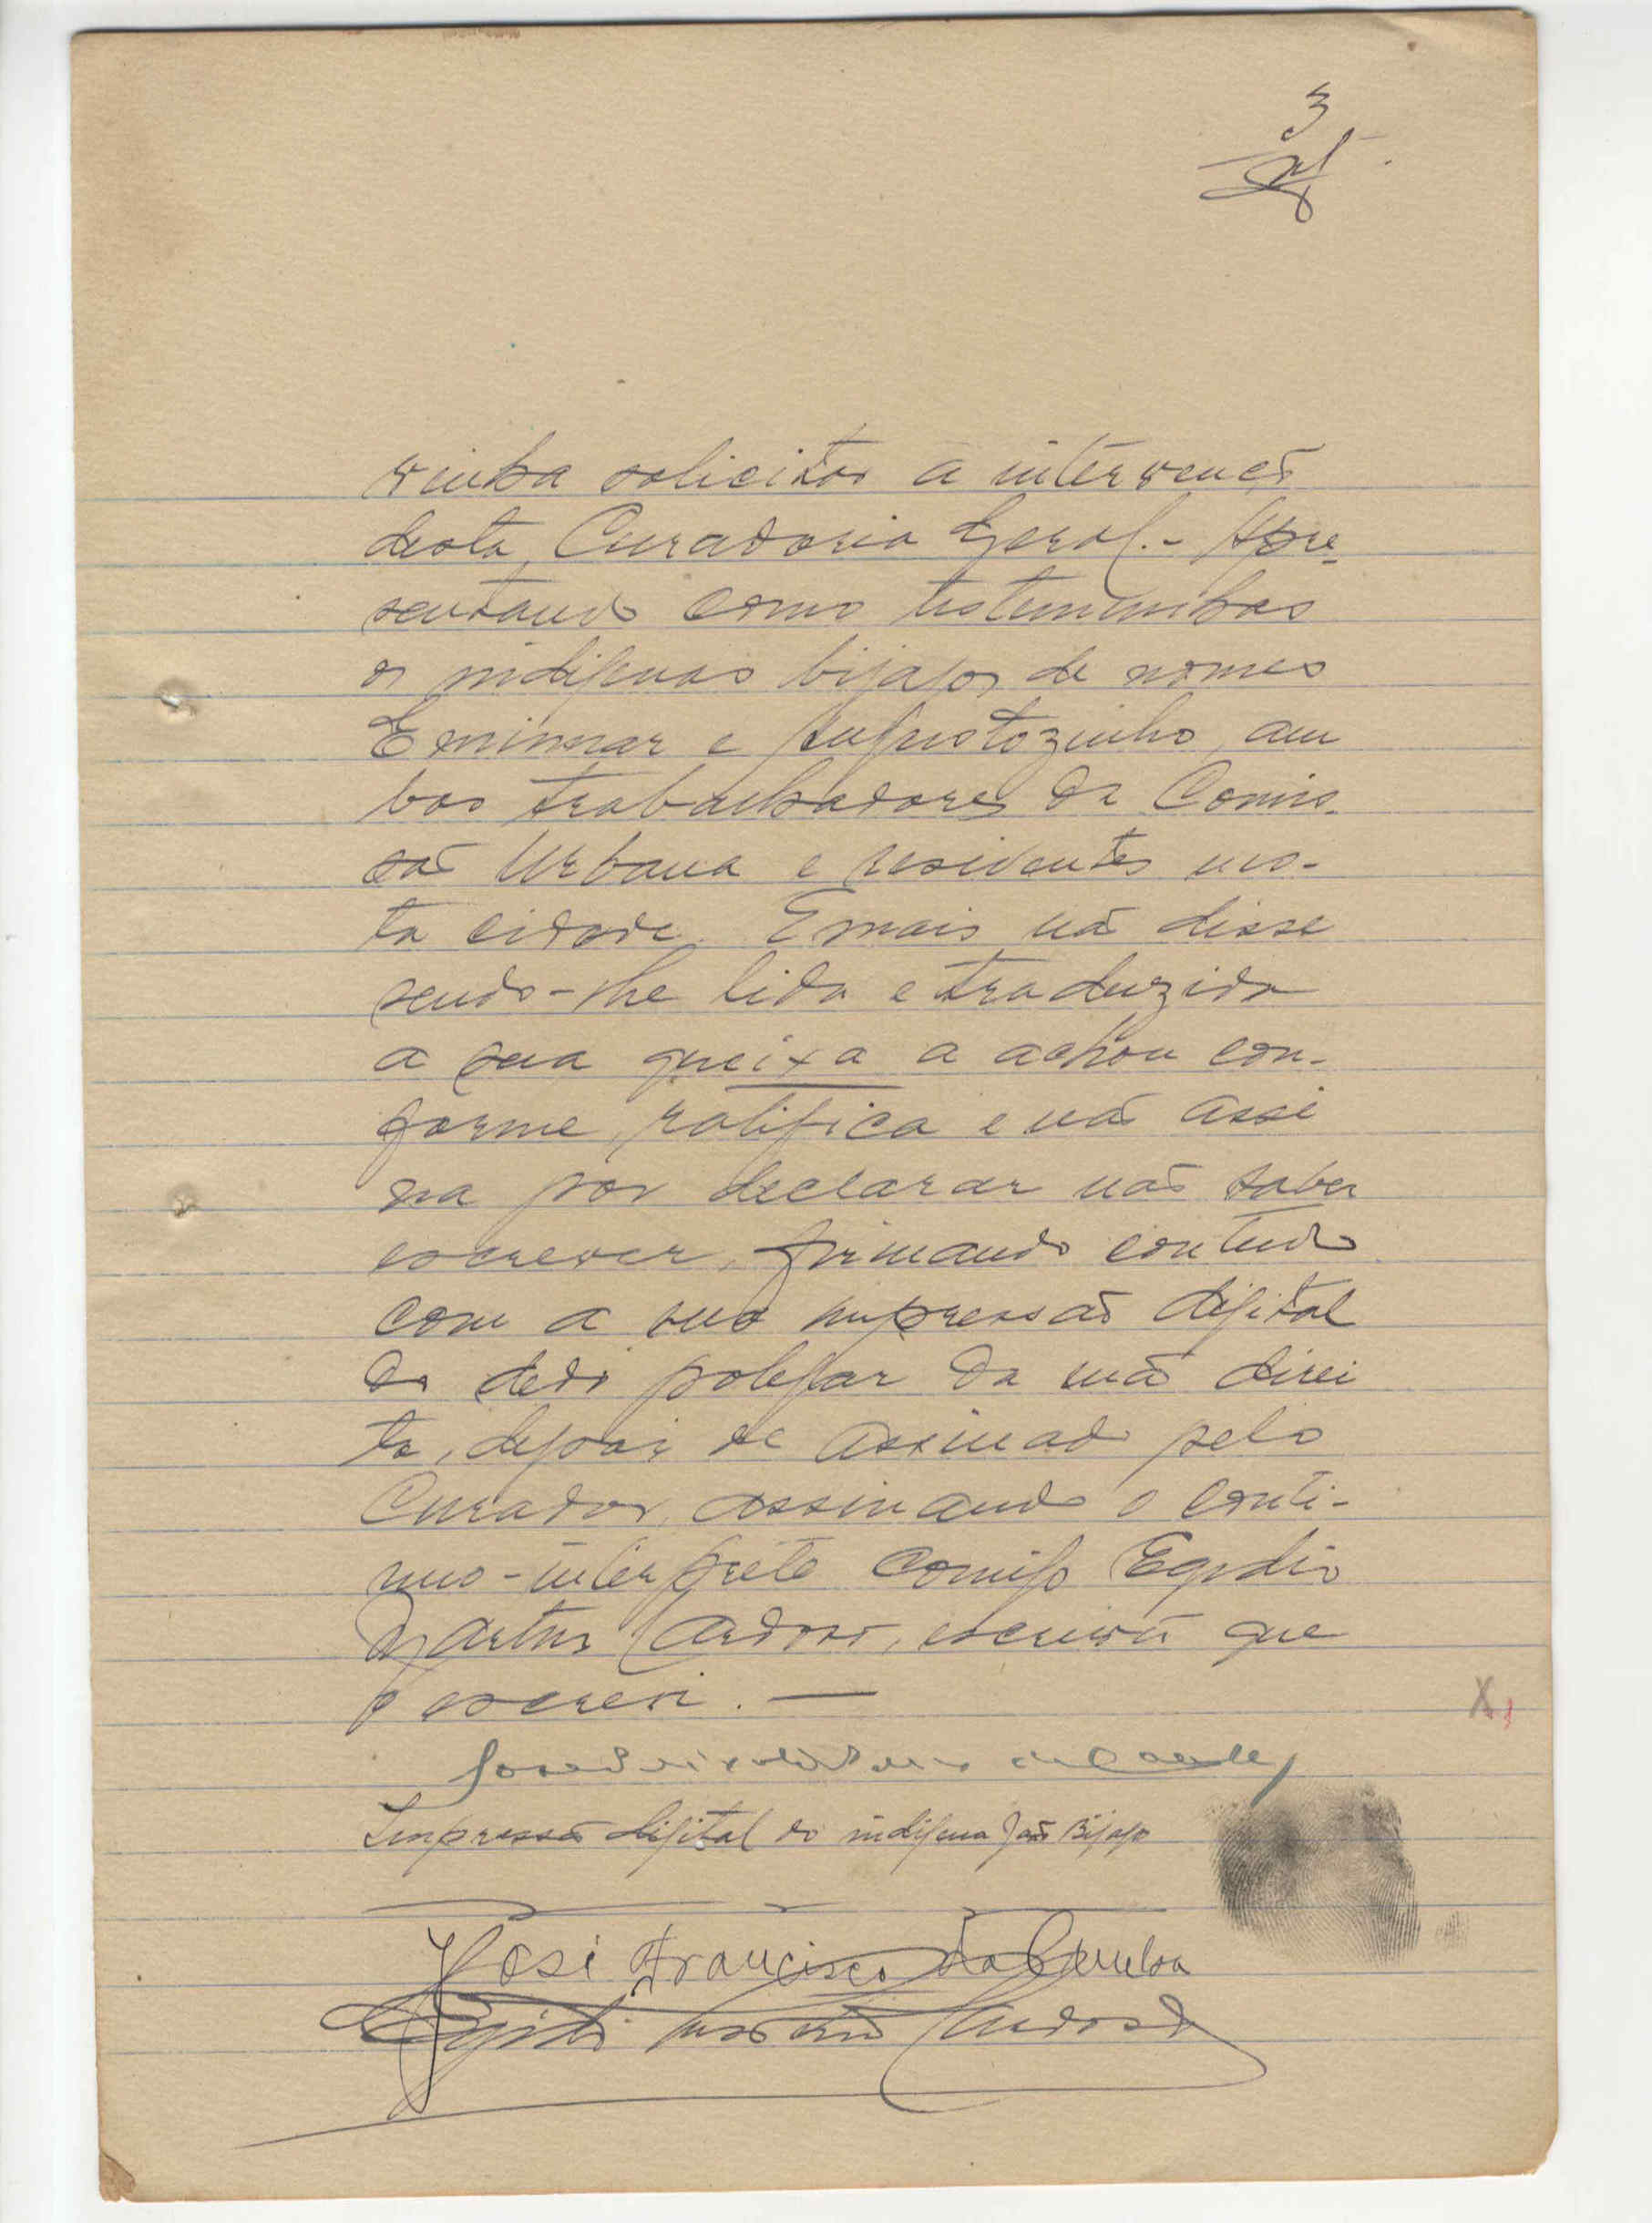 3
vinha solicitar a intervençã
desta, Curadoria Geral. - Apre_
sentando como testemunhas
os indígenas bijagos de nomes
Eminnar e Augustozinho, am
bos trabalhadores da Comis-
são Urbana e residentes nes-
ta cidade. E mais nã disse
sendo-lhe lida e traduzida
a sua queixa a achou con-
forme, ratifica e não assi
na por declarar não saber
escrever, firmando contudo
com a sua impressão digital
do dedo polegar da mão direi
ta, depois de assinado pelo
Curador, assinando o conti-
nuo-intérprete comigo Egidio
Martins Cardoso, escrivão que
o escrevi. —
Impressão digital do indigena João Bijago
José Francisco da Cunha
Egidio Cardoso
X